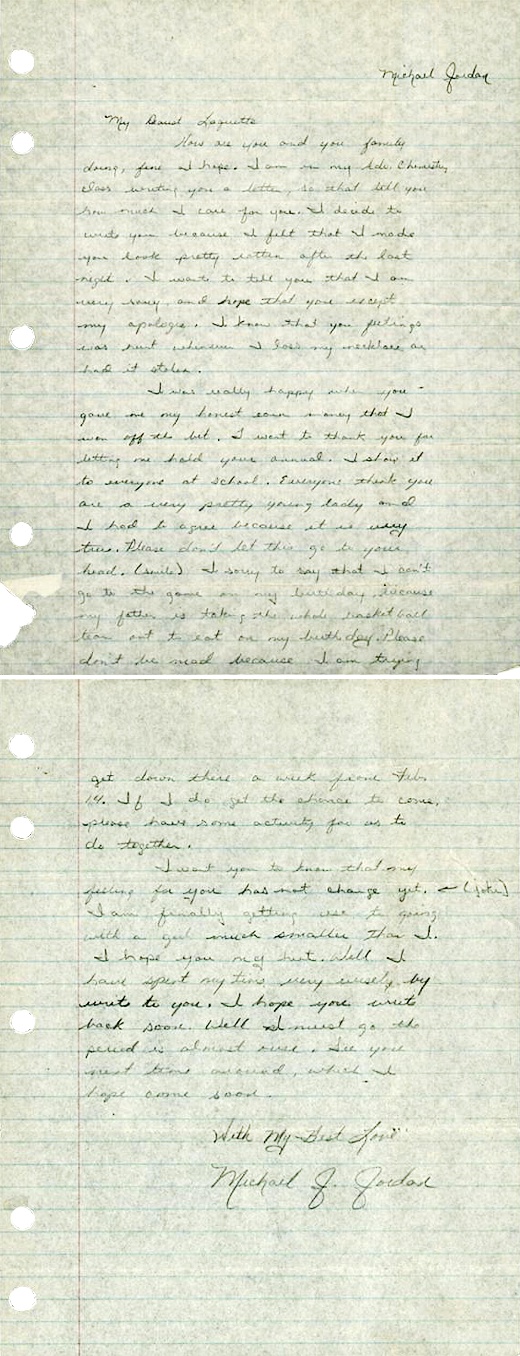 Michael Jordan
My Dearest Laquette
How are you and you family
doing, fine I hope. I am in my Adv. Chemistry
class writing you a letter, so that tell you
how much I care for you. I decide to
write you because I felt that I made
you look pretty rotten after the last
night. I want to tell you that I am
very sorry and hope that you except
my apologie. I know that you feelings
was hurt whenever I loss my necklace or
had it stolen.
I was really happy when you
gave me my honest earn money that I
won off the bet. I want to thank you for
letting me hold your annual. I show it
to everyone at school. Everyone think you
are a very pretty young lady and
I had to agree because it is very
true. Please don't let this go to your
head. (smile) I sorry to say that I can't
go to the game on my birthday because
my father is taking the whole basketball
team out to eat on my birthday. Please
don't be mad because I am trying
get down there a week from Feb.
14. If I do get the chance to come,
please have some activity for us to
do together.
I want you to know that my
feeling for you has not change yet. (joke)
I am finally getting use to going
with a girl much smaller than I.
I hope you my
have spent my time very wisely by
write to you. I hope you write
back soon. Well I must go the
period is almost over. See you
next time around, which I
hope come soon.
With My Best Love
Michael J. Jordan